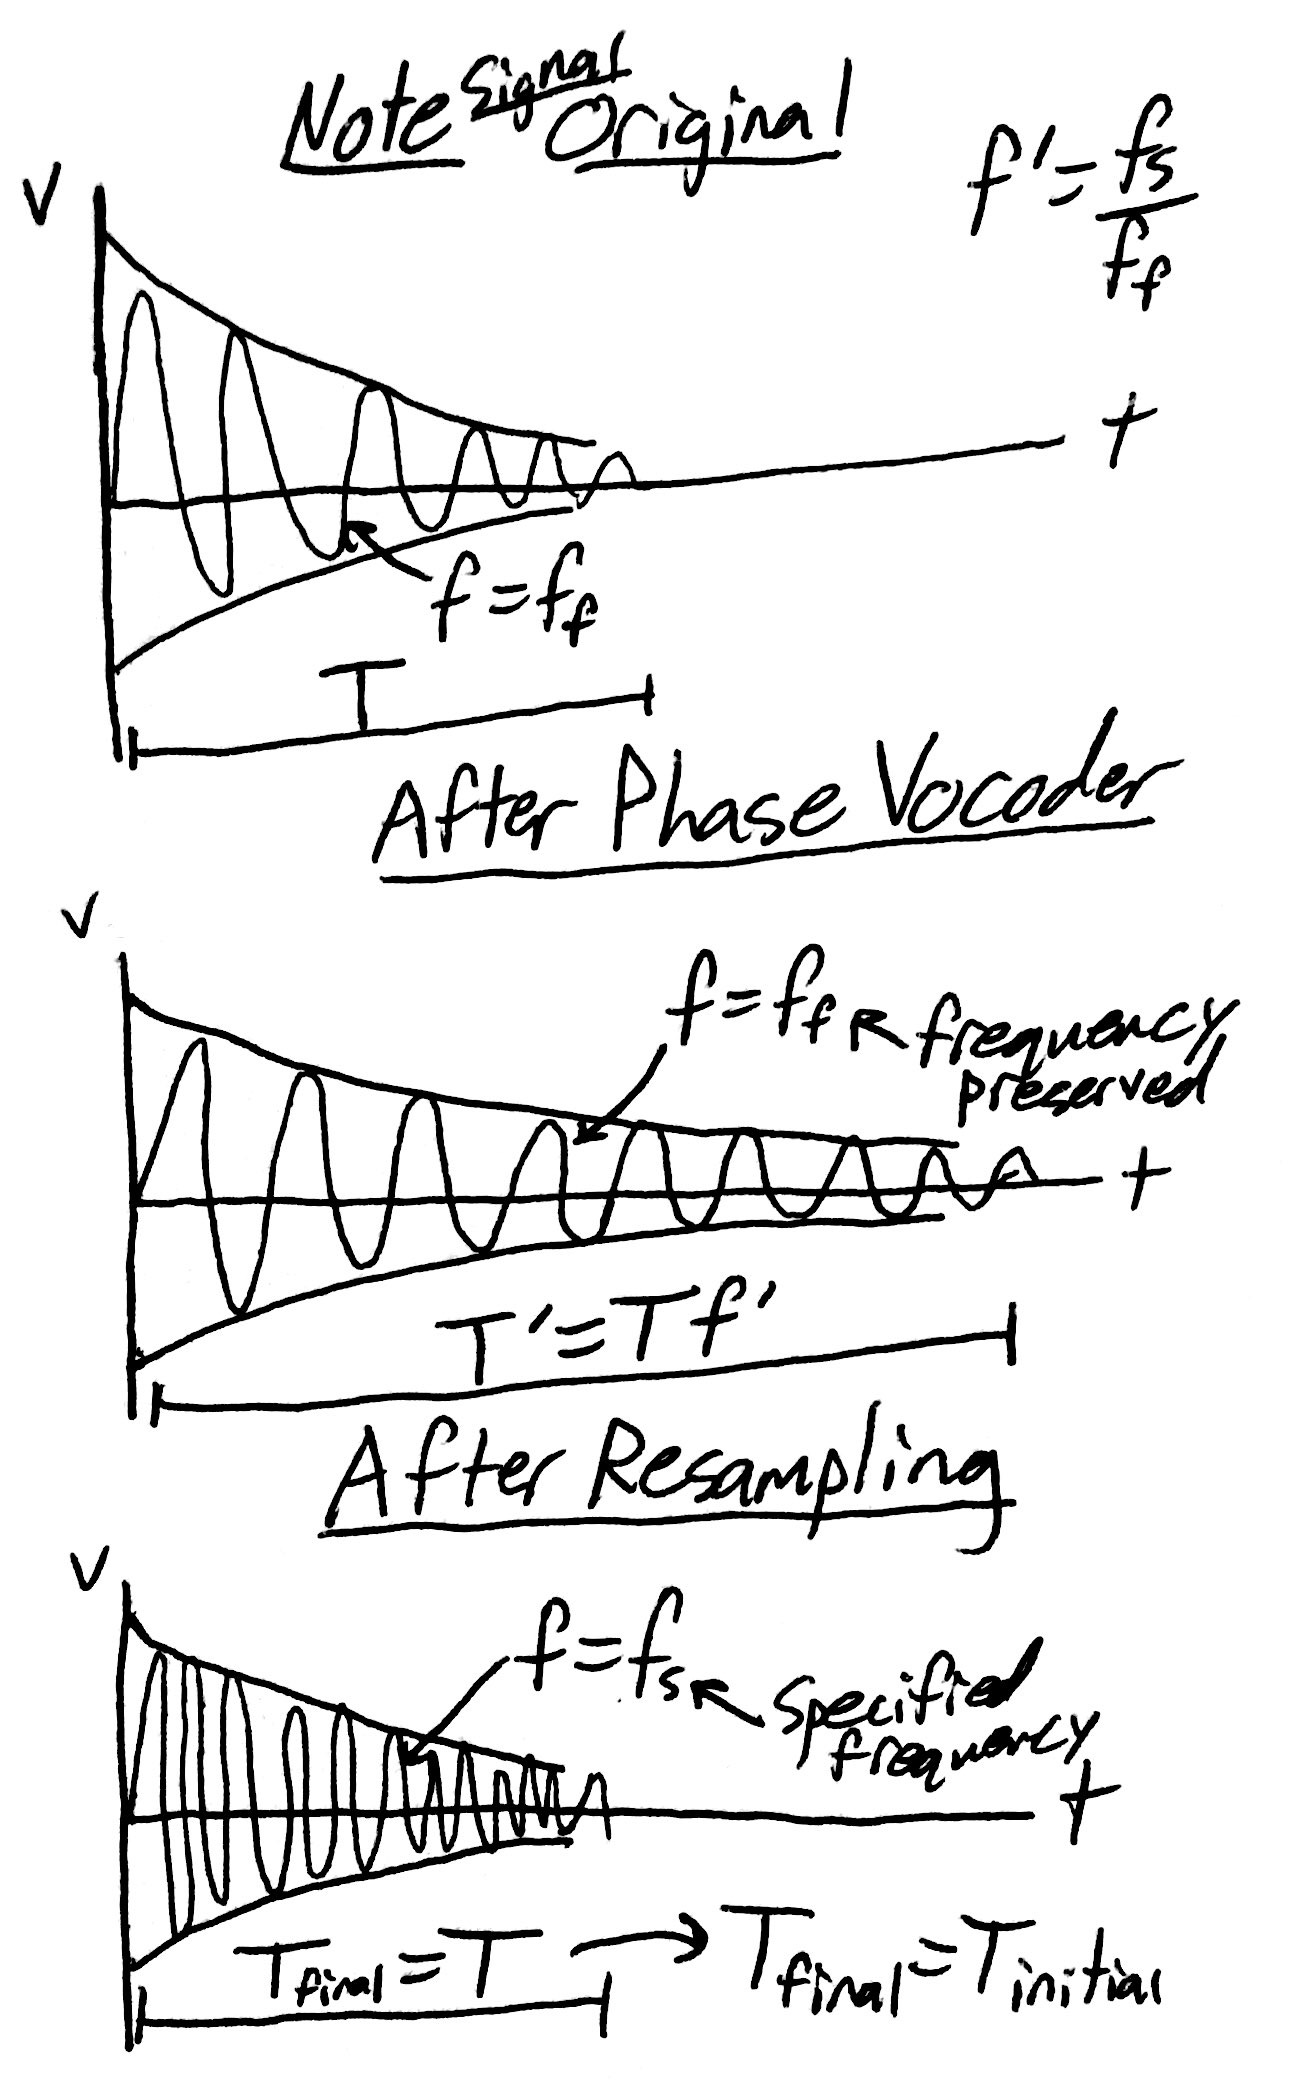 Note Signal Original
f' = fs / ff
V
t
f = ff
T
After Phase Vocoder
V
f = ff frequency
preserved
t
T' = T f'
After Resampling
V
f = fs specified
frequency
t
Tfinal = T → Tfinal = Tinitial